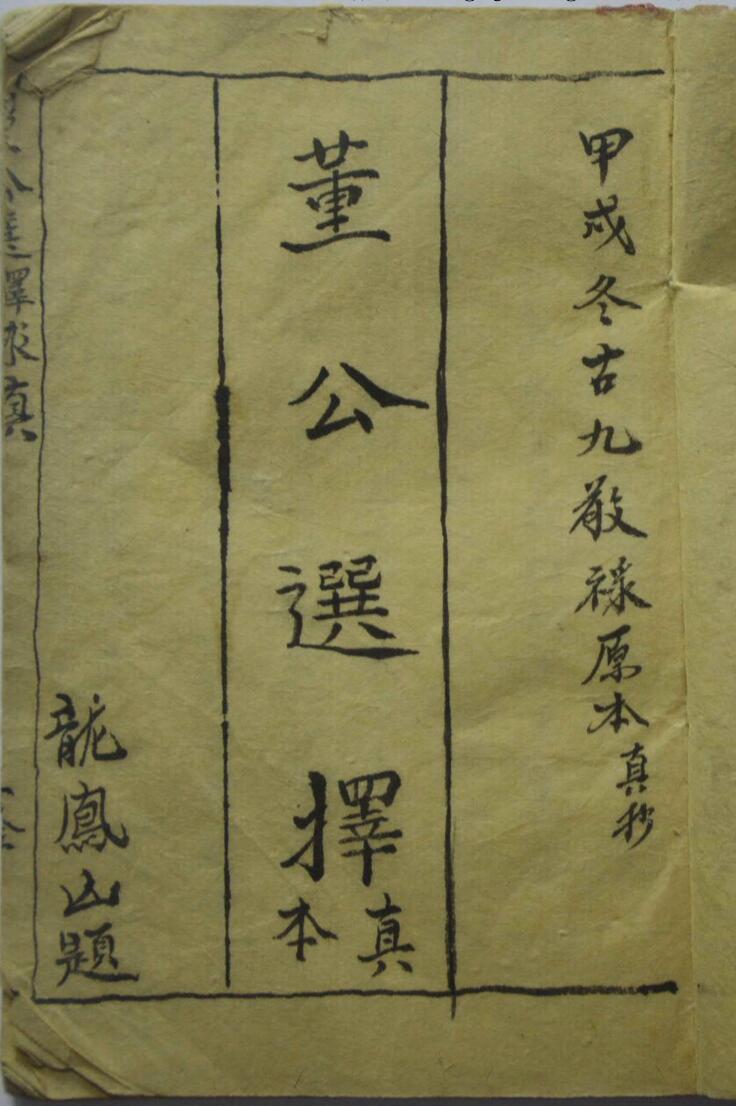 甲戌冬古九祿原本真抄
董公選擇真本
龍鳳山題
擇求真